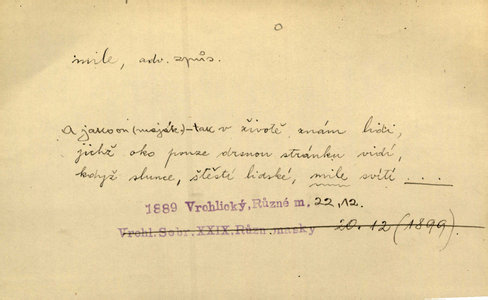 mile, adv. způs.
A jako on (maják) - tak v životě znám lidi,
jichž oko pouze drsnou stránku vidí,
když slunce, štěstí lidské, mile svítí....
1889 Vrchlický, Různé m. 22, 12.
Vrchl. Sebr. XXIX. Různ. masky 20.12 (1899)